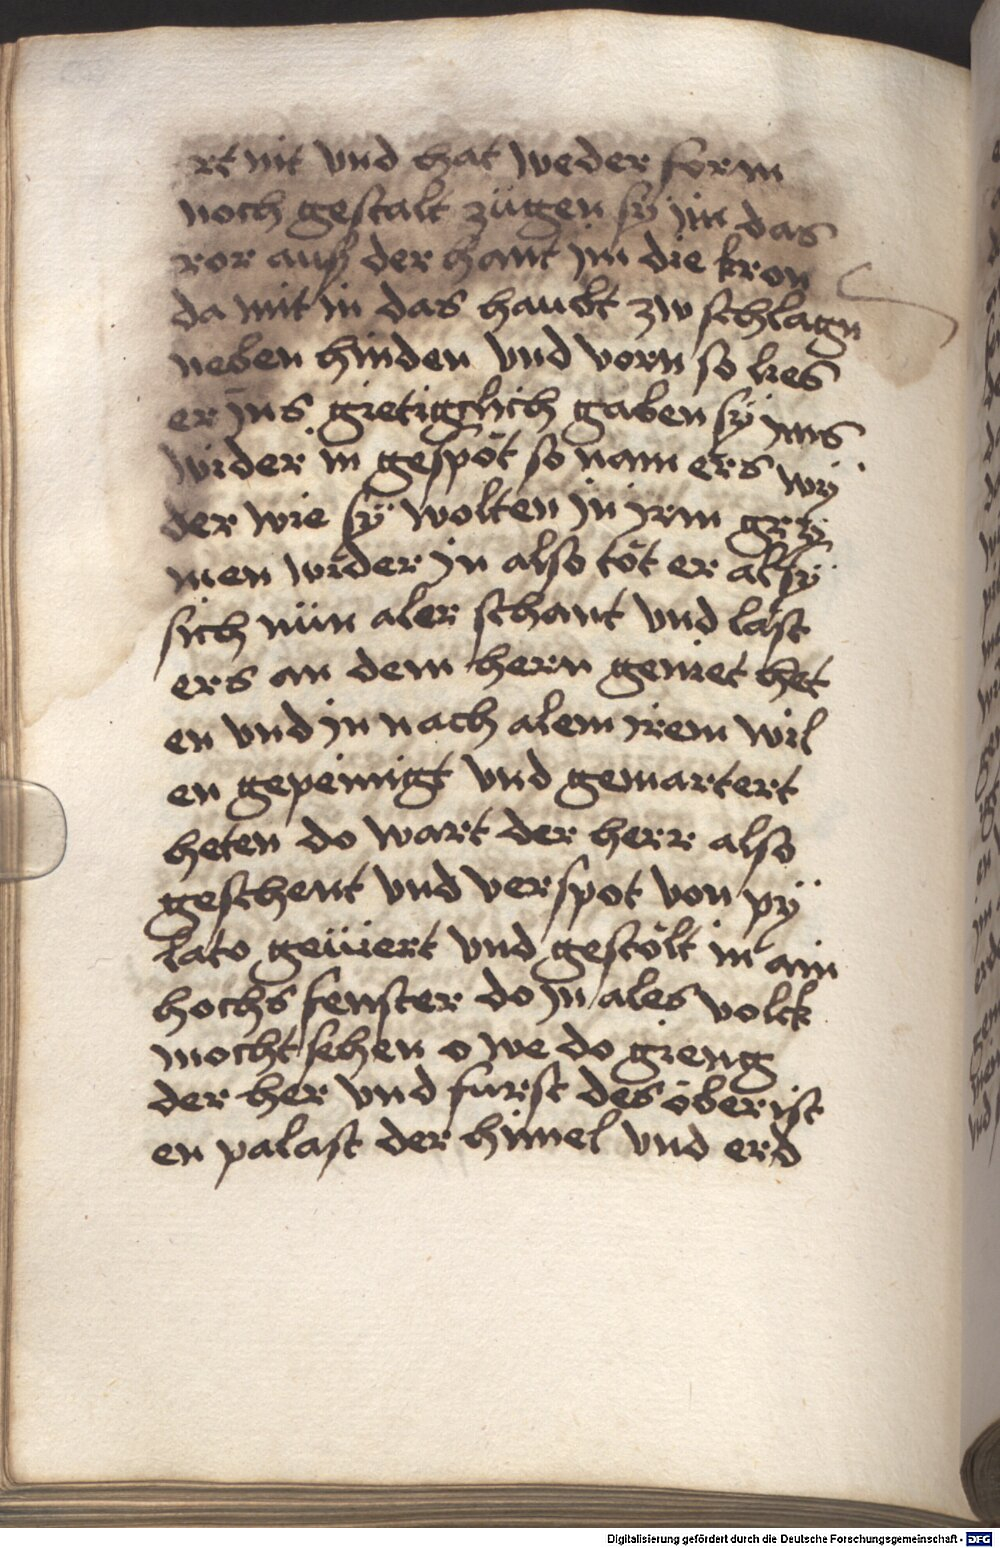 rt nit vnd hat weder form
noch gestalt zügen sÿ im das
ror auß der hant im die kron
da mit in das haubt zw schlagn
neben hinden vnd vorn so lies
er ins gietigclich gaben sÿ ims
wider in gespöt so nam ers wÿ
der wie sÿ wolten in irm grÿ
men wider in also töt er als sÿ
sich nün aler schant vnd läst
ers an dem hern geniet het
en vnd in nach alem irem wil
en gepeinigt vnd gemartert
heten do wart der herr also
geschent vnd verspot von pÿ
lato gefüert vnd gestölt in ain
hochs fenster do in ales volck
mocht sehen o we do gieng
der her vnd furst des öberist
en palast der himel vnd erd
Digitalisierung gefördert durch die Deutsche Forschungsgemeinschaft - DFG